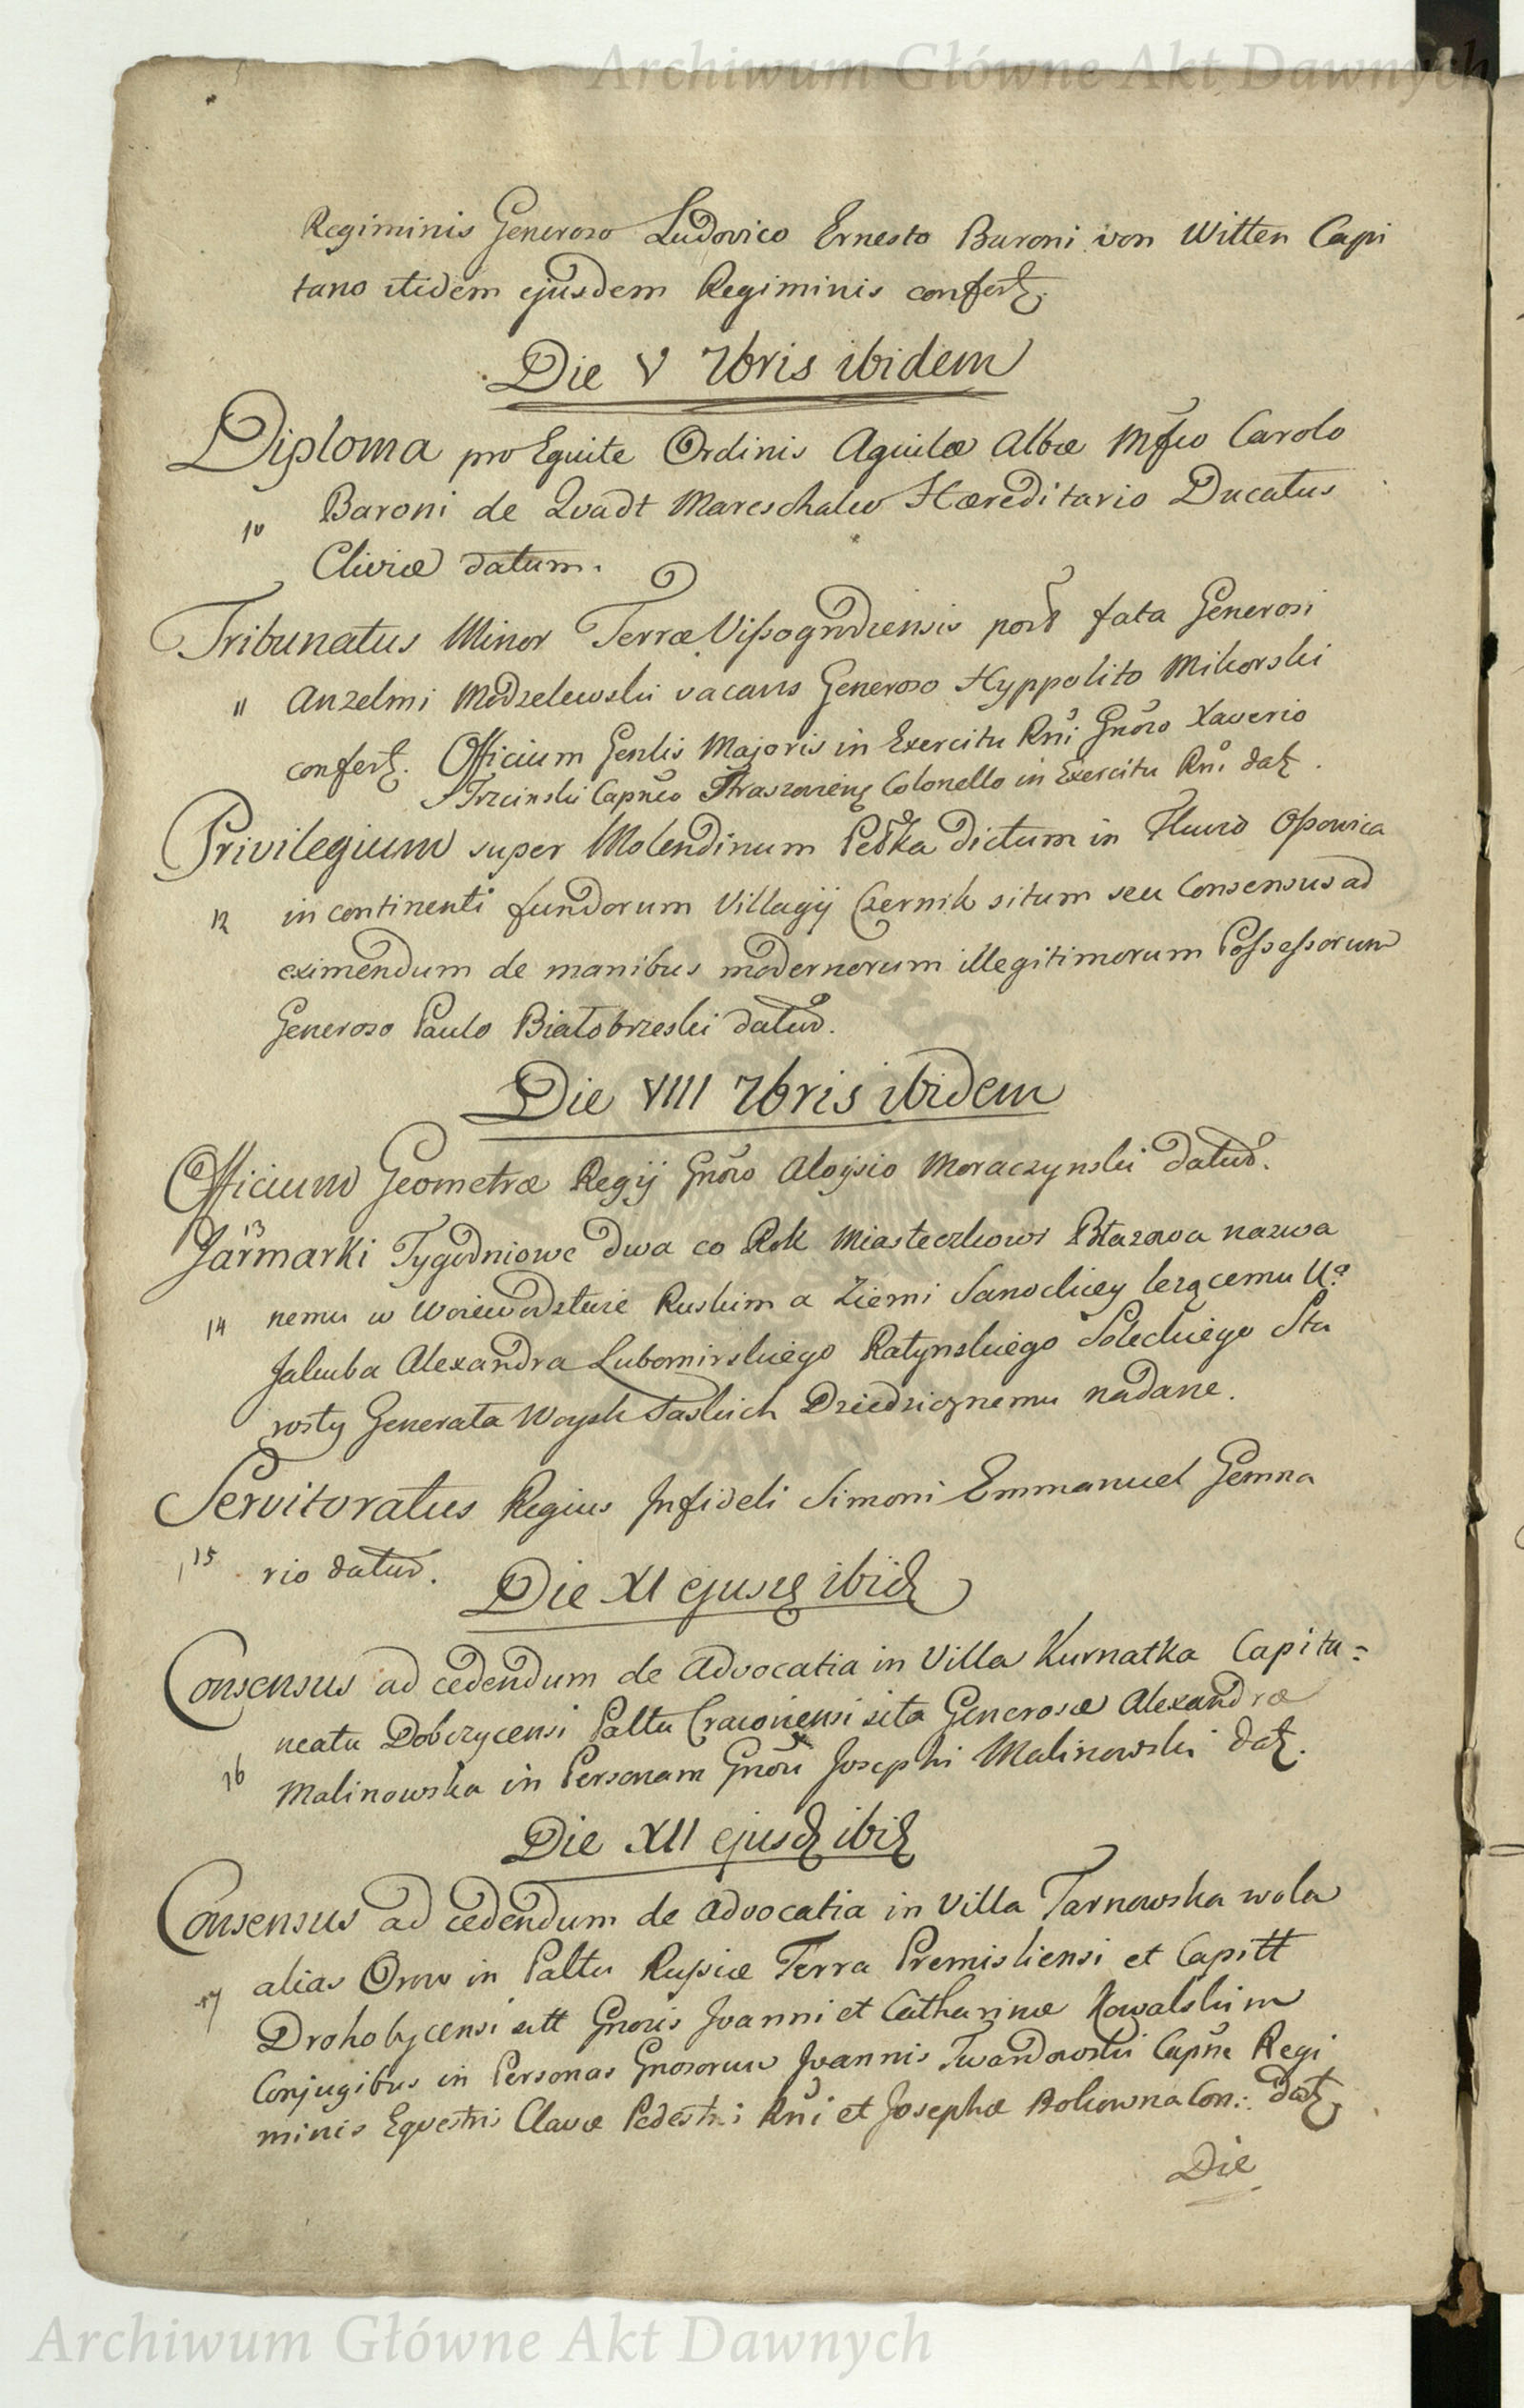 Archiwum Główne Akt Dawnych
Regiminis Generoso Ludovico Ernesto Baroni von Witten Capi
tano itidem ejusdem Regiminis confert.
Die V 7bris ibidem
Diploma pro Equite Ordinis Aquilæ Albæ Mfco Carolo
10 Baroni de Quadt Mareschalco Hæreditario Ducatus
Cliviæ datum.
Tribunatus Minor Terræ Vissogrodiensis post fata Generosi
11 Anzelmi Modzelewski vacans Generoso Hyppolito Mikorski
confert. Officium Genlis Majoris in Exercitu Rni Gnoso Xaverio
Trzcinski Capneo Colonello in Exercitu Rni dat.
Privilegium super Molendinum Pestka dictum in Fluvio Ossowica
12 in continenti fundorum Villagij Czernik situm seu Consensus ad
eximendum de manibus modernorum illegitimorum Possessorum
Generoso Paulo Białobrzeski datur.
Die VIII 7bris ibidem
Officium Geometræ Regij Gnoso Aloysio Moraczynski datur.
13
Jarmarki Tygodniowe dwa co Rok Miasteczkowi Błazowa nazwa
14 nemu w Woiewodztwie Ruskim a Ziemi Sanockiey lezącemu Uo
Jakuba Alexandra Lubomirskiego Ratynskiego Soleckiego Sta
rosty Generała Woysk Saskich Dziedzicznemu nadane.
Servitoratus Regius Infideli Simoni Emmanuel Genna
15 rio datur.
Die XI ejusd ibid
Consensus ad cedendum de Advocatia in Villa Kurnatka Capita=
neatu Dobczycensi Palttu Cracoviensi sita Generosæ Alexandræ
16 Malinowska in Personam Gnosi Josephi Malinowski dat.
Die XII ejusd ibid
Consensus ad cedendum de Advocatia in Villa Tarnowska wola
17 alias Orow in Palttu Russiæ Terra Premisliensi et Capitt
Drohobycensi sitt Gnosis Joanni et Catharinæ Kowalskim
Conjugibus in Personas Gnosorum Joannis Twardowski Capne Regi
minis Equestris Clavæ Pedestri Rni et Josephæ Con: dat.
Die
Archiwum Główne Akt Dawnych